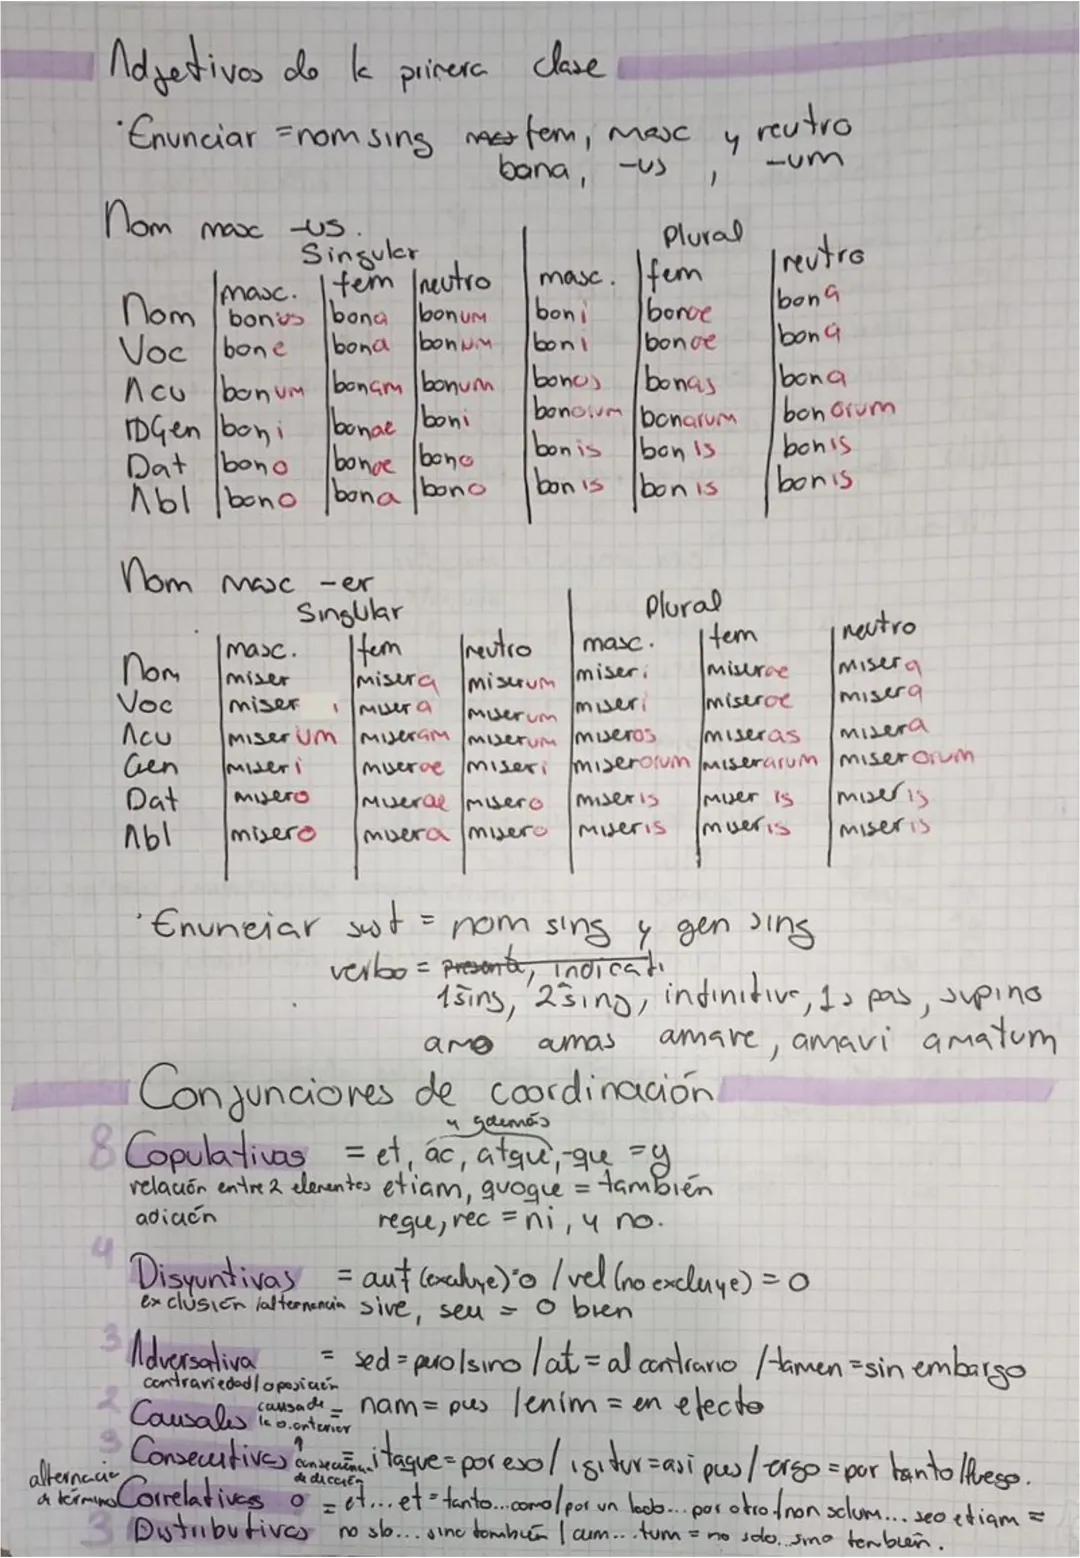 Adjetivos de la primera clase
·Enunciar = nom sing fem, masc y neutro
bona, -us, -um
Nom masc -us.
Singular Plural
masc. fem neutro masc. fem neutro
Nom bonus bona bonum boni bonae bona
Voc bone bona bonum boni bonae bona
Acu bonum bonam bonum bonos bonas bona
Gen boni bonae boni bonorum bonarum bonorum
Dat bono bonae bono bonis bonis bonis
Abl bono bona bono bonis bonis bonis
Nom masc -er
Singular Plural
masc. fem neutro masc. fem neutro
Nom miser misera miserum miseri miserae misera
Voc miser misera miserum miseri miserae misera
Acu miserum miseram miserum miseros miseras misera
Gen miseri miserae miseri miserorum miserarum miserorum
Dat misero miserae misero miseris miseris miseris
Abl misero misera misero miseris miseris miseris
·Enunciar sust = nom sing y gen sing
verbo = presente, indicati
1ªsing, 2ªsing, infinitivo, 1s pas, supino
amo amas amare, amavi amatum
Conjunciones de coordinación
y además
8 Copulativas = et, ac, atque, -que = y
relación entre 2 elementos etiam, quoque = también
adición neque, nec = ni, y no.
4
Disyuntivas = aut (excluye) o / vel (no excluye) = o
exclusión /alternancia sive, seu = o bien
3 Adversativa = sed = pero/sino / at = al contrario / tamen = sin embargo
contrariedad/oposición
2 Causales causa de la o. anterior = nam = pues / enim = en efecto
3 Consecutivas consecuencia de dicción = itaque = por eso / igitur = asi pues / ergo = por tanto/luego.
alternacia de término Correlativas o = et... et = tanto... como/por un lado... por otro / non solum... seo etiam =
3 Distributivas no slo... sino también / cum... tum = no solo... sino también.